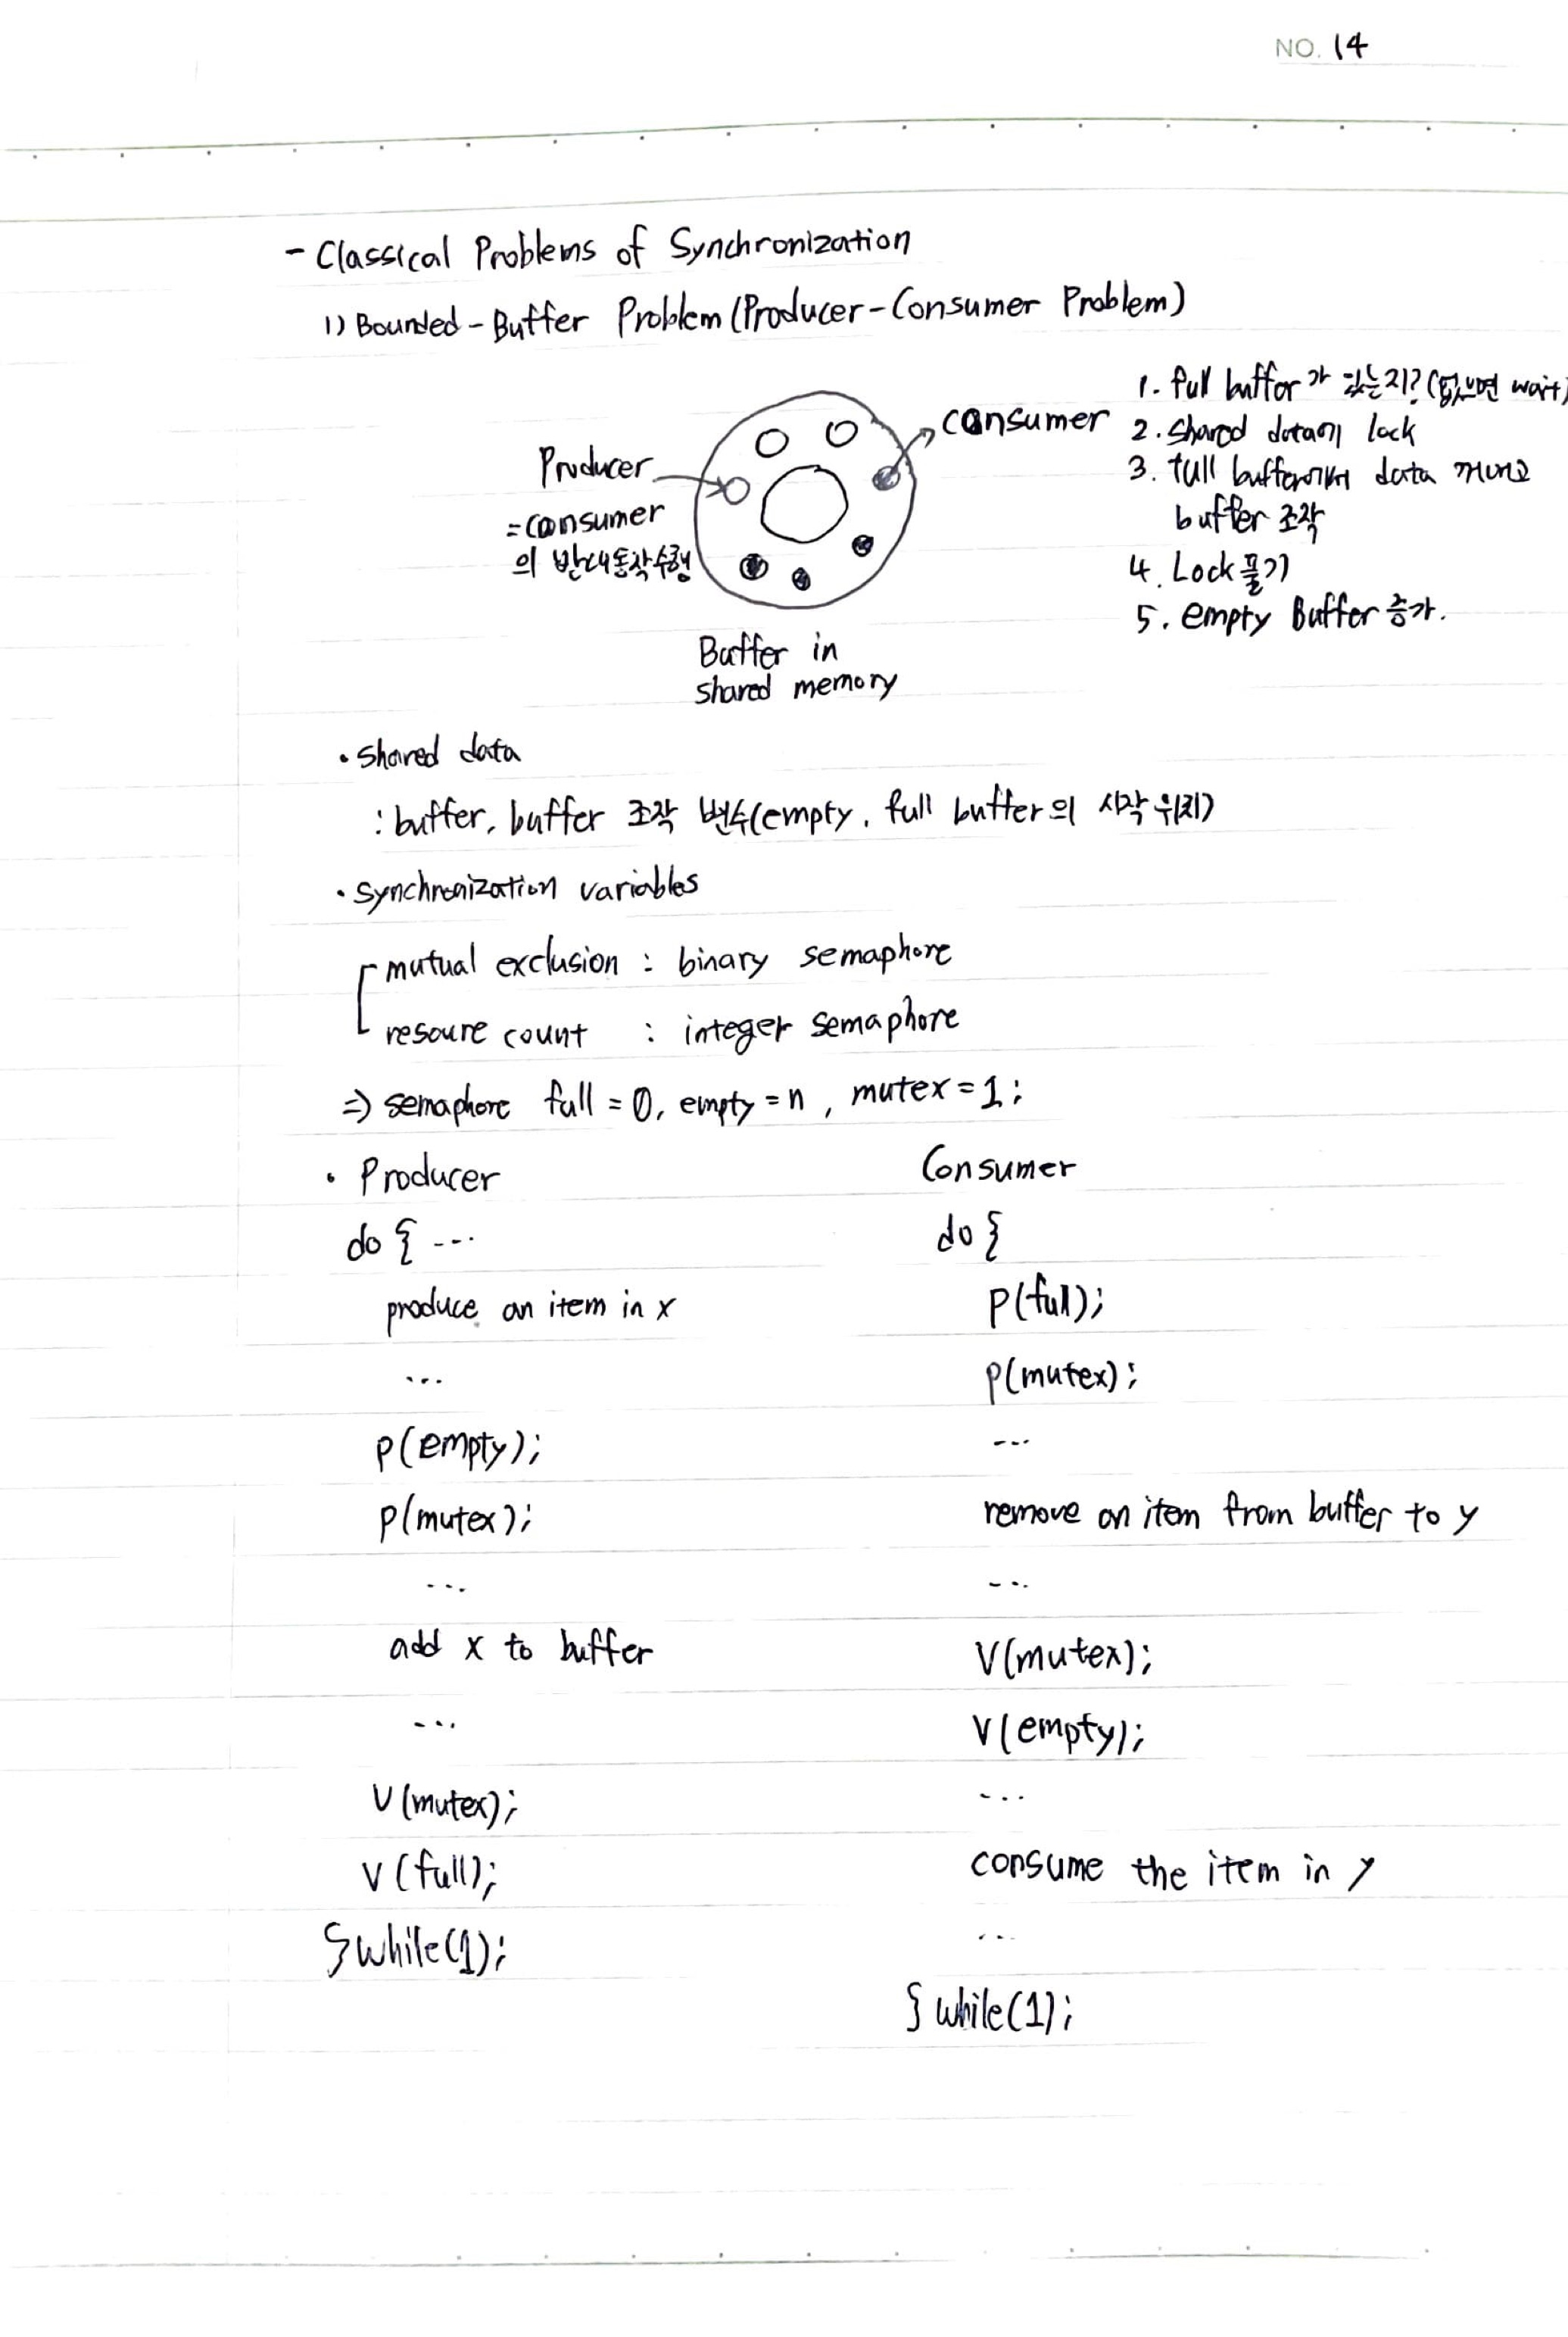 NO. 14
- Classical Problems of Synchronization
1) Bounded-Buffer Problem (Producer-Consumer Problem)
Producer
=consumer
의 반대동작수행
consumer
1. full buffer가 있는지? (없으면 wait)
2. shared data에 lock
3. full buffer에서 data 꺼내고
buffer 조작
4. Lock 풀기
5. empty Buffer 증가.
Buffer in
shared memory
• shared data
: buffer, buffer 조작 변수(empty, full buffer의 시작 위치)
• synchronization variables
mutual exclusion : binary semaphore
resoure count : integer semaphore
⇒ semaphore full = 0, empty = n, mutex = 1;
• Producer
do { ...
produce an item in x
...
P(empty);
P(mutex);
...
add x to buffer
...
V(mutex);
V(full);
}while(1);
Consumer
do {
P(full);
P(mutex);
...
remove an item from buffer to y
...
V(mutex);
V(empty);
...
consume the item in y
...
} while(1);